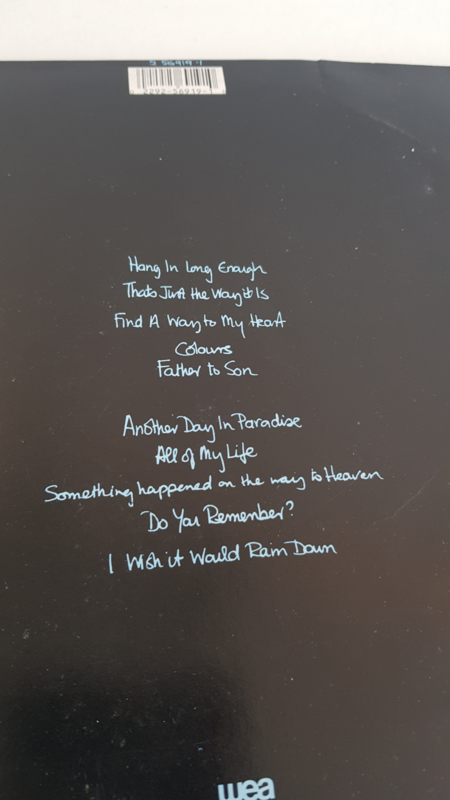 2 56919-1
2292-56919-1
Hang In Long Enough
Thats Just the Way it Is
Find A Way to My Heart
Colours
Father to Son
Another Day In Paradise
All of My Life
Something happened on the way to Heaven
Do You Remember?
I Wish it Would Rain Down
wea